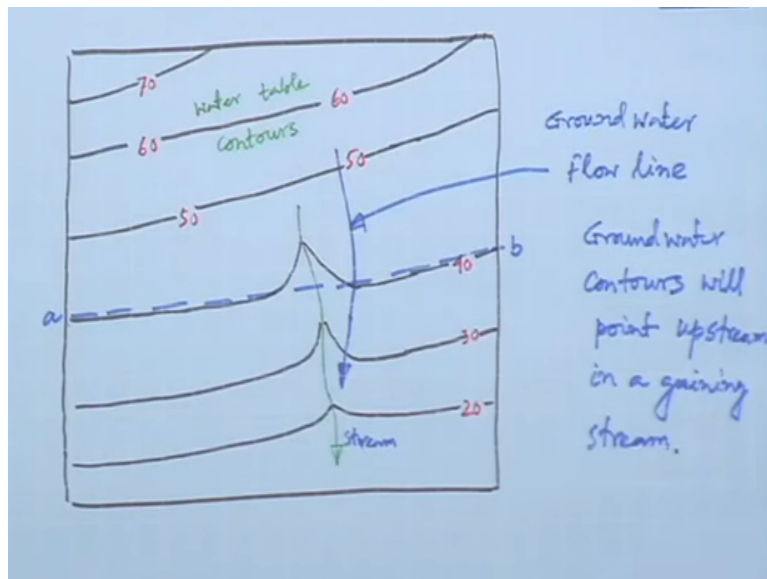 70
water table
60
60
contours
50
50
a
b
40
30
20
stream
Ground water
flow line
Groundwater
Contours will
point upstream
in a gaining
stream.